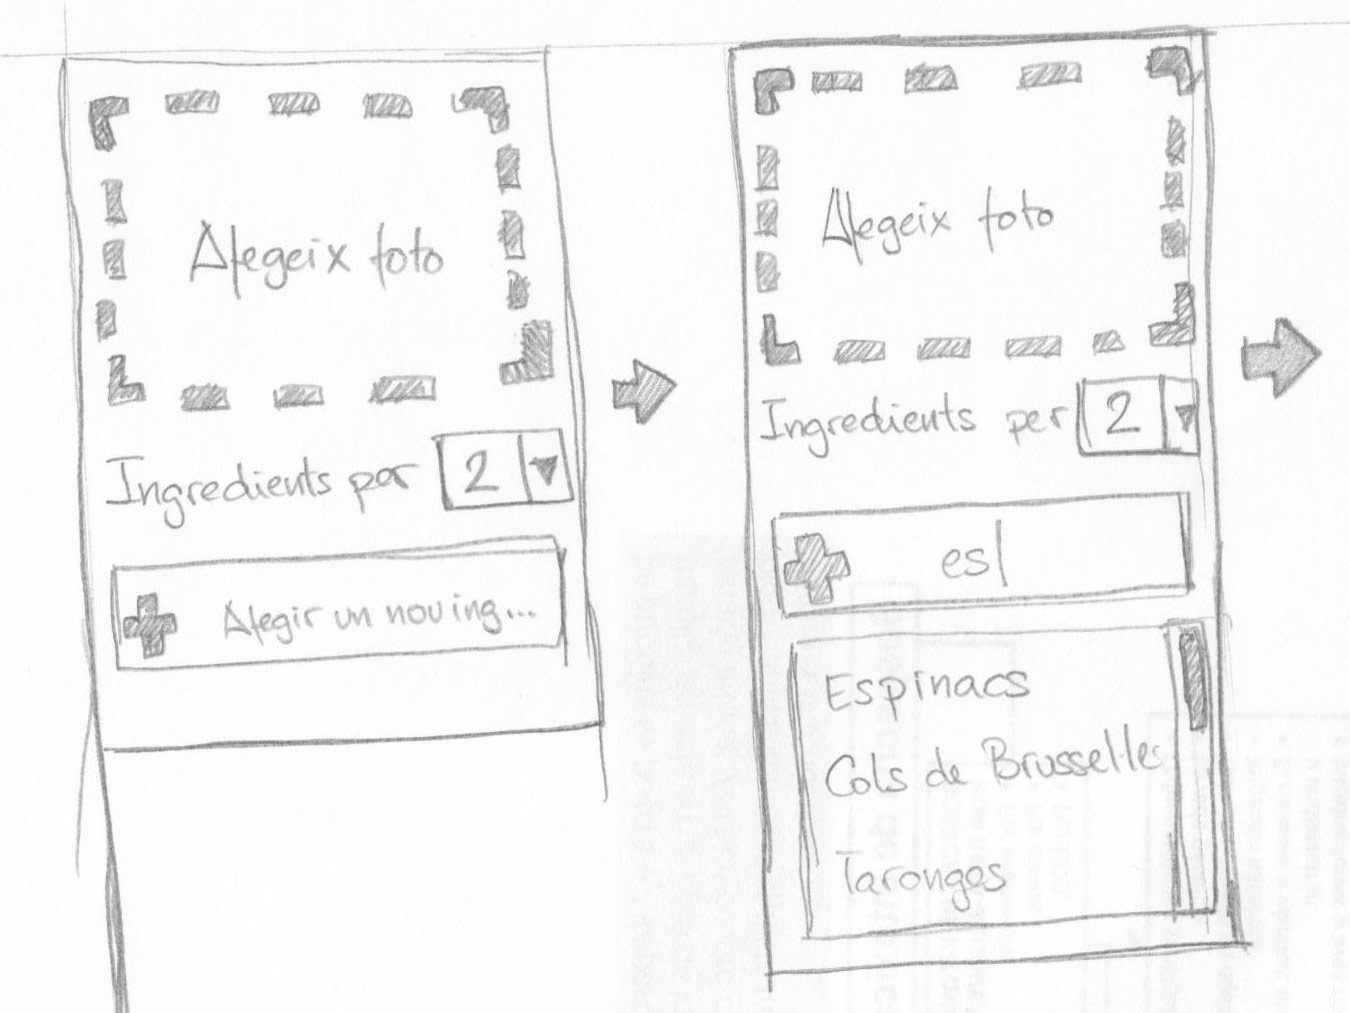 Afegeix foto
Ingredients per 2
Afegir un nou ing...
Afegeix foto
Ingredients per 2
es
Espinacs
Cols de Brussel·les
Taronges